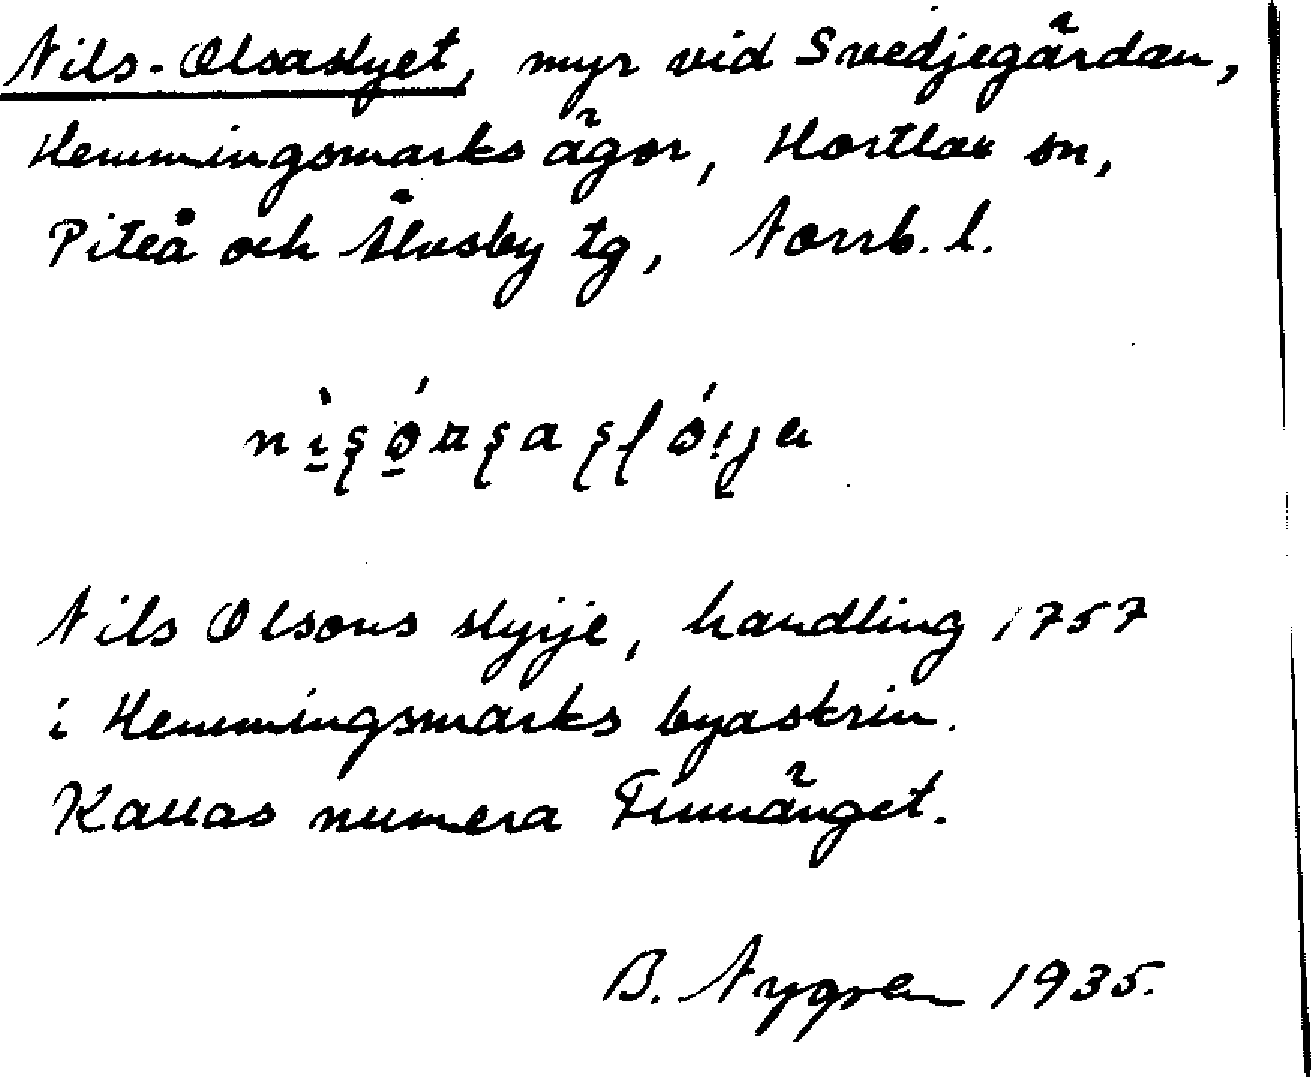 Nils-Olsaslyet, myr vid Svedjegärdan,
Hemmingsmarks ägor, Hortlax sn,
Piteå och Älvsby tg, Norrb. l.
Nils Olsons slyije, handling 1757
i Hemmingsmarks byaskrin.
Kallas numera Finnänget.
B. Nygren 1935.